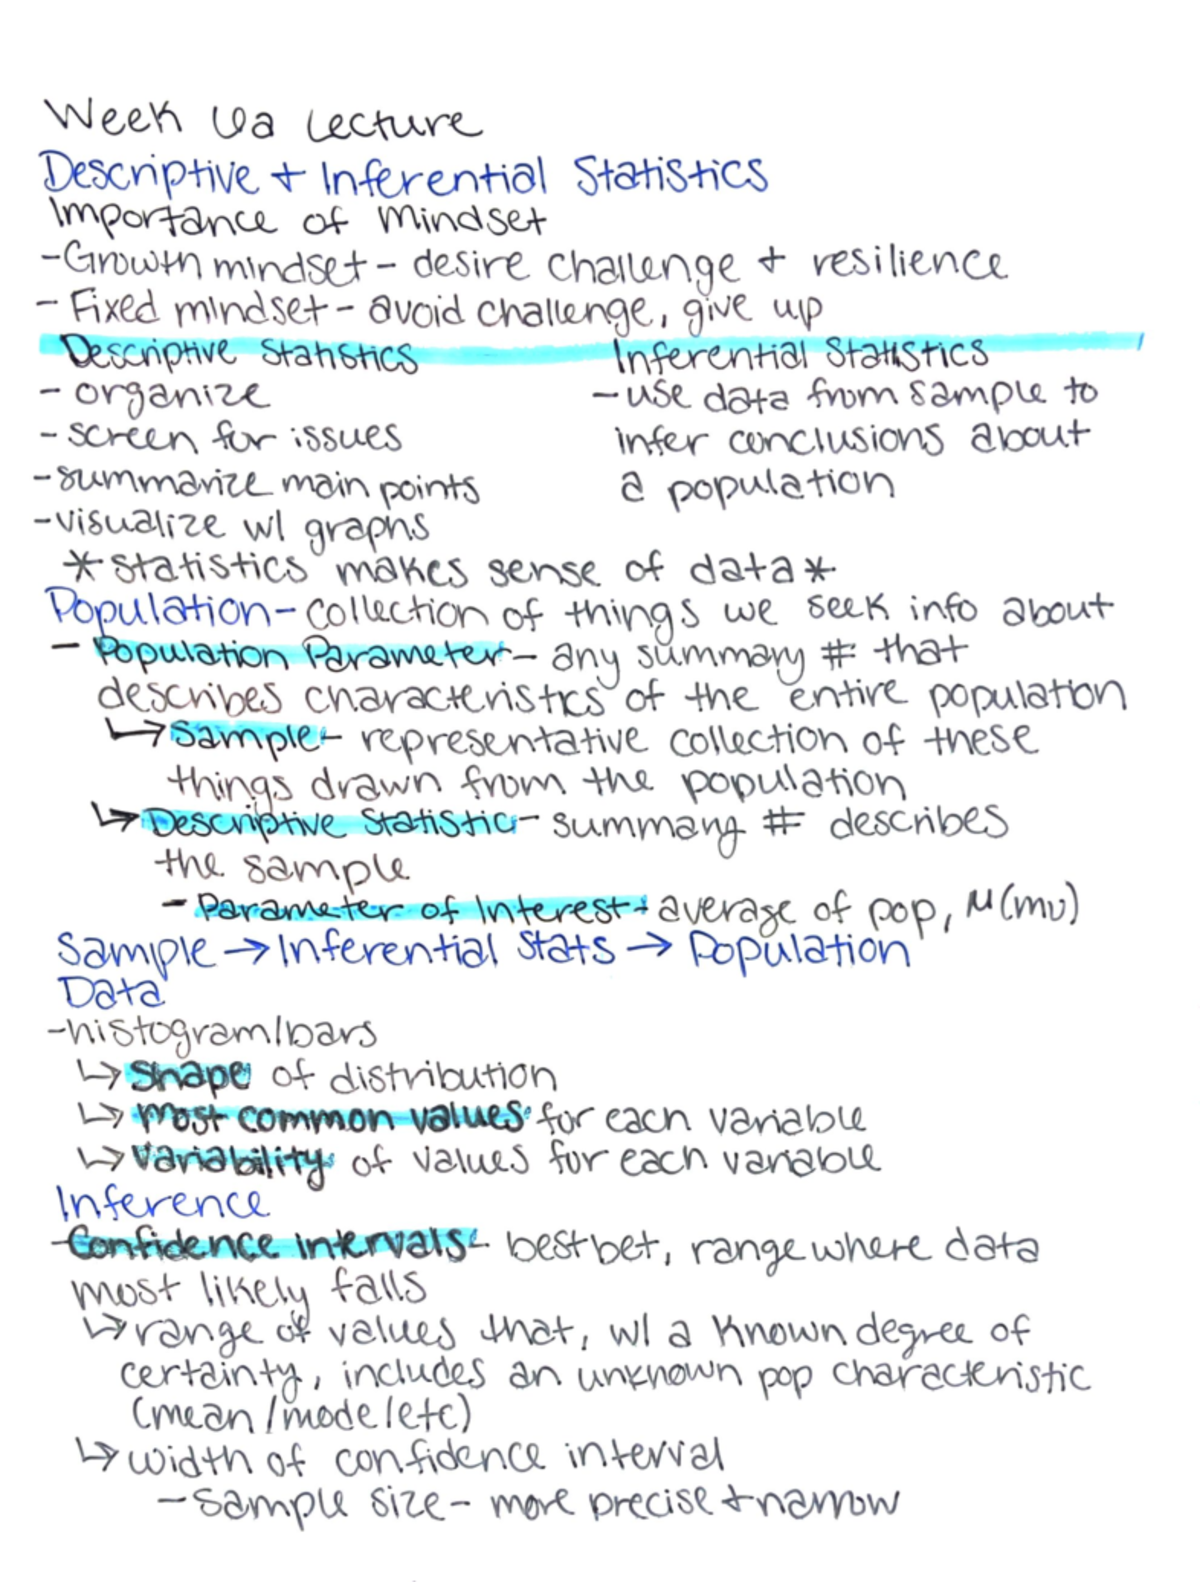 Week 6a Lecture
Descriptive + Inferential Statistics
Importance of Mindset
-Growth mindset - desire challenge + resilience
- Fixed mindset - avoid challenge, give up
Descriptive Statistics Inferential Statistics
- organize - use data from sample to
- screen for issues infer conclusions about
-summarize main points a population
-visualize w/ graphs
*statistics makes sense of data*
Population - collection of things we seek info about
- Population Parameter - any summary # that
describes characteristics of the entire population
↳ Sample - representative collection of these
things drawn from the population
↳ Descriptive Statistic - summary # describes
the sample
- Parameter of Interest: average of pop, μ(mu)
Sample → Inferential Stats → Population
Data
-histogram/bars
↳ Shape of distribution
↳ most common values for each variable
↳ Variability of values for each variable
Inference
-Confidence intervals - best bet, range where data
most likely falls
↳ range of values that, w/ a known degree of
certainty, includes an unknown pop characteristic
(mean/mode/etc)
↳ width of confidence interval
- Sample size - more precise + narrow